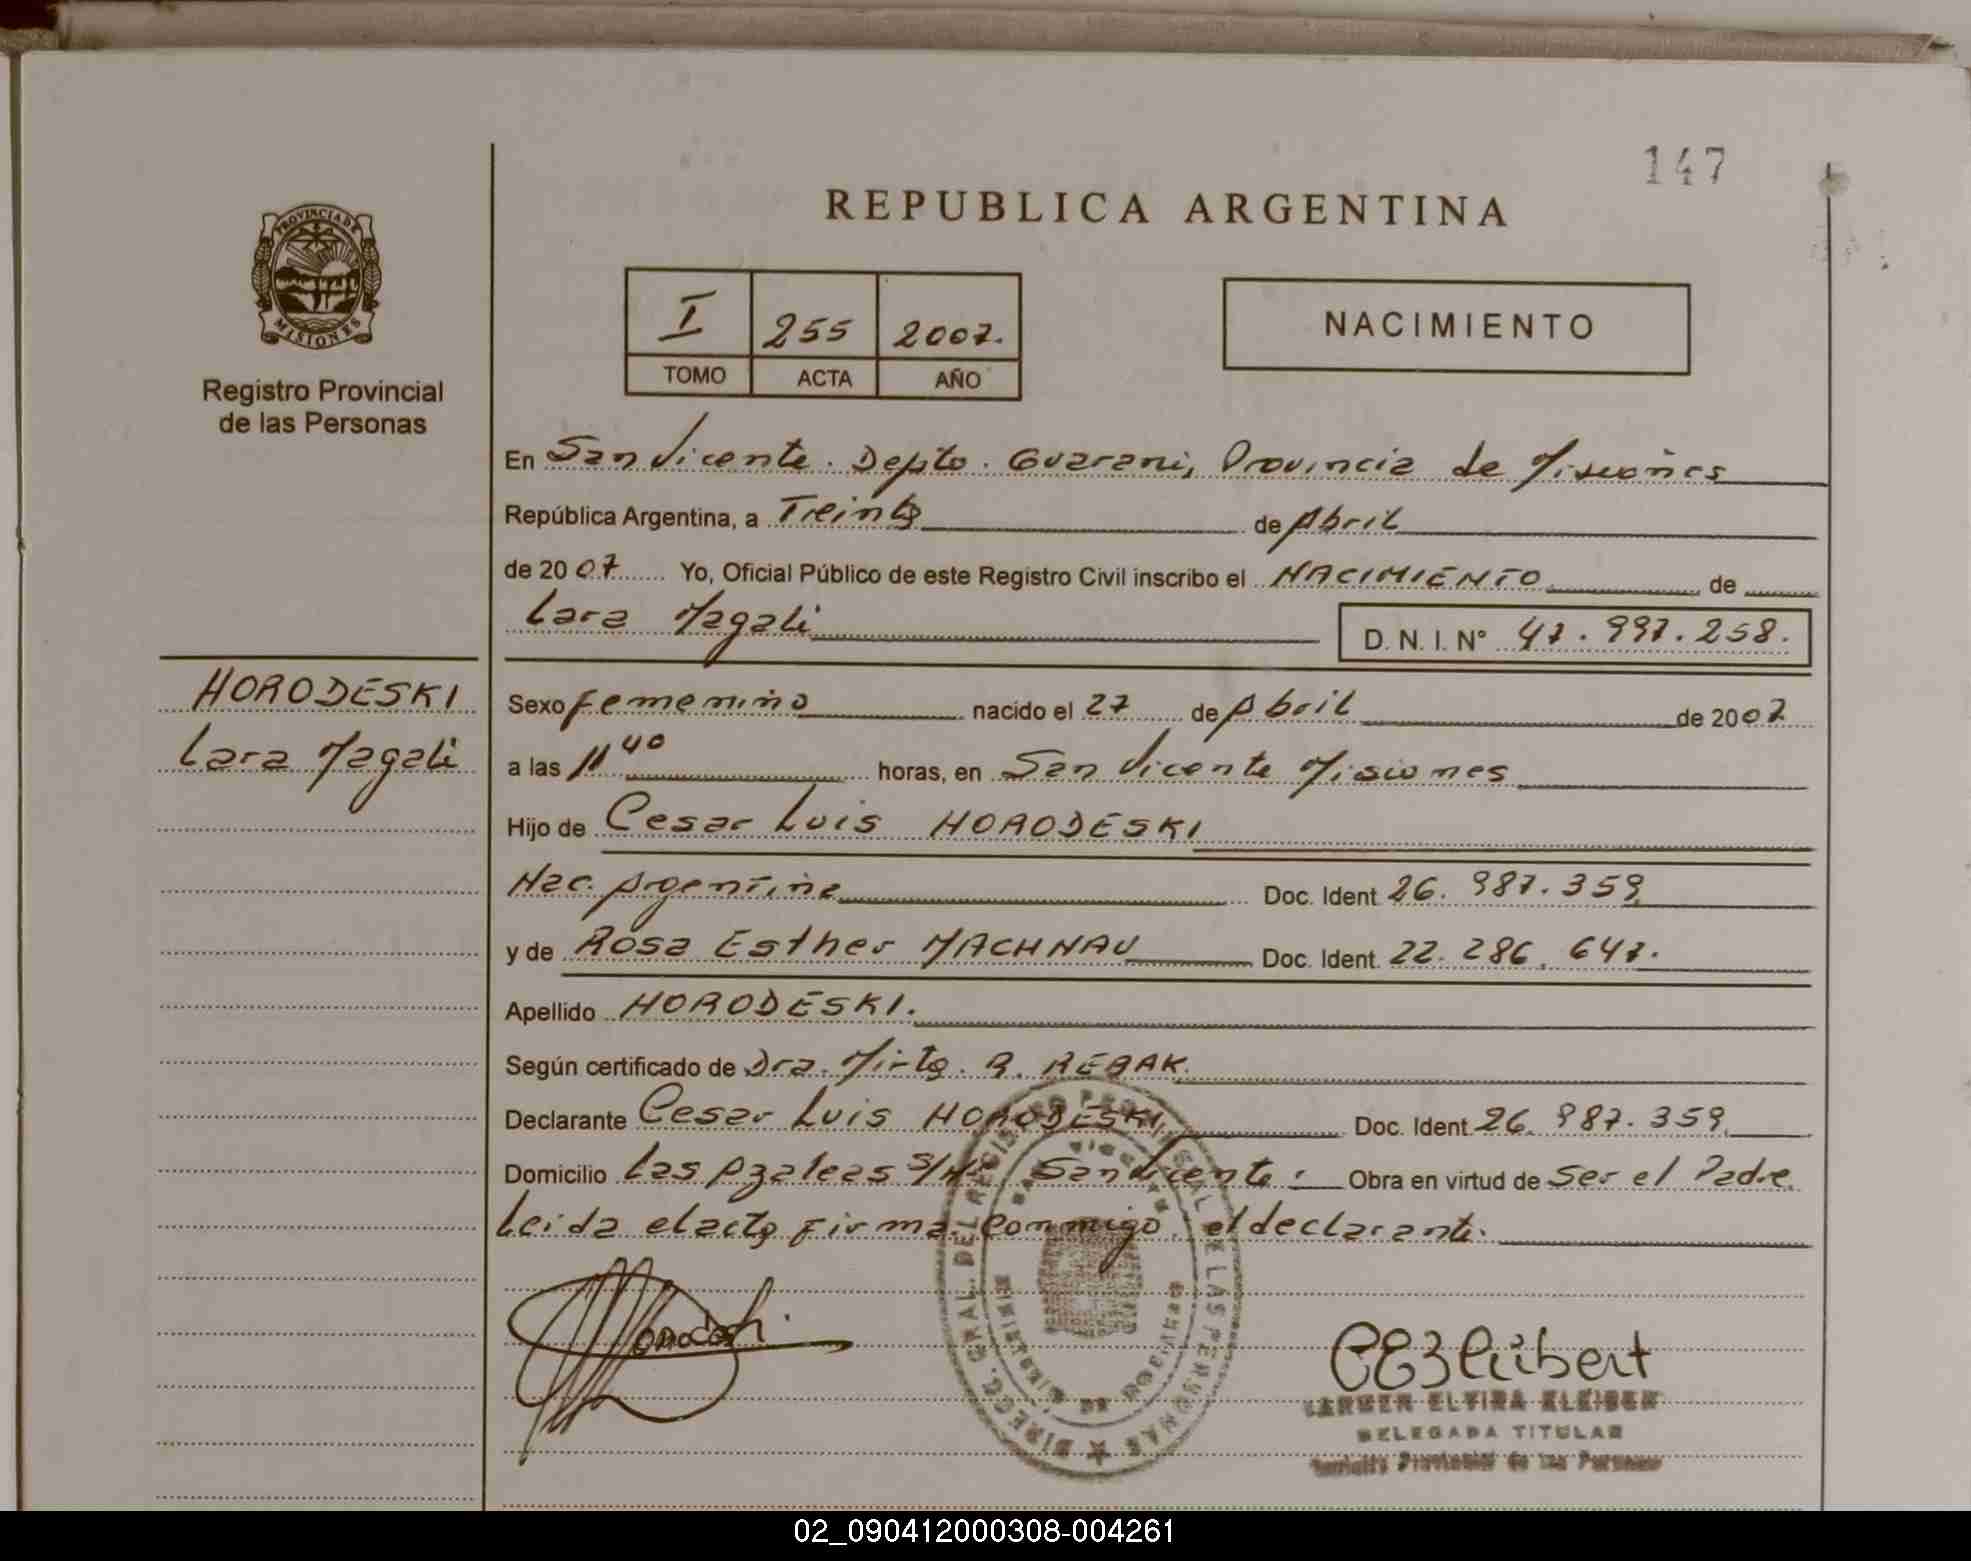 147
REPUBLICA ARGENTINA
PROVINCIA DE
MISIONES
Registro Provincial
de las Personas
I 255 2007.
TOMO ACTA AÑO
NACIMIENTO
En San Vicente. Depto. Guarani, Provincia de Misiones
República Argentina, a Treinta de Abril
de 2007 Yo, Oficial Público de este Registro Civil inscribo el NACIMIENTO de
Lara Magali D. N. I. N° 47.997.258.
HORODESKI
Lara Magali
Sexo Femenino nacido el 27 de Abril de 2007
a las 11 40 horas, en San Vicente Misiones
Hijo de Cesar Luis HORODESKI
Nac. Argentina Doc. Ident. 26.987.359
y de Rosa Esther MACHNAU Doc. Ident. 22.286.647.
Apellido HORODESKI.
Según certificado de Dra. Mirta. R. REBAK.
Declarante Cesar Luis HORODESKI Doc. Ident. 26.987.359
Domicilio Las Azaleas S/N° San Vicente: Obra en virtud de Ser el Padre
Leida el acta firma conmigo el declarante.
DIRECC. GRAL. DEL REGISTRO PROVINCIAL DE LAS PERSONAS
SAN VICENTE
Horodeski
DELEGADA TITULAR
Provincial de las Personas
02_090412000308-004261